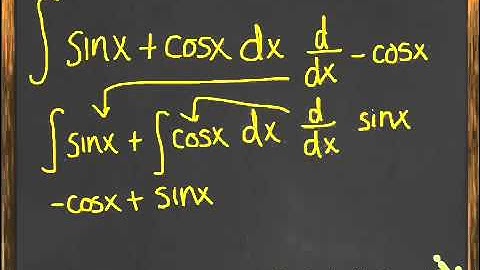 ∫ sinx + cosx dx d/dx - cosx
∫ sinx + ∫ cosx dx d/dx sinx
-cosx + sinx